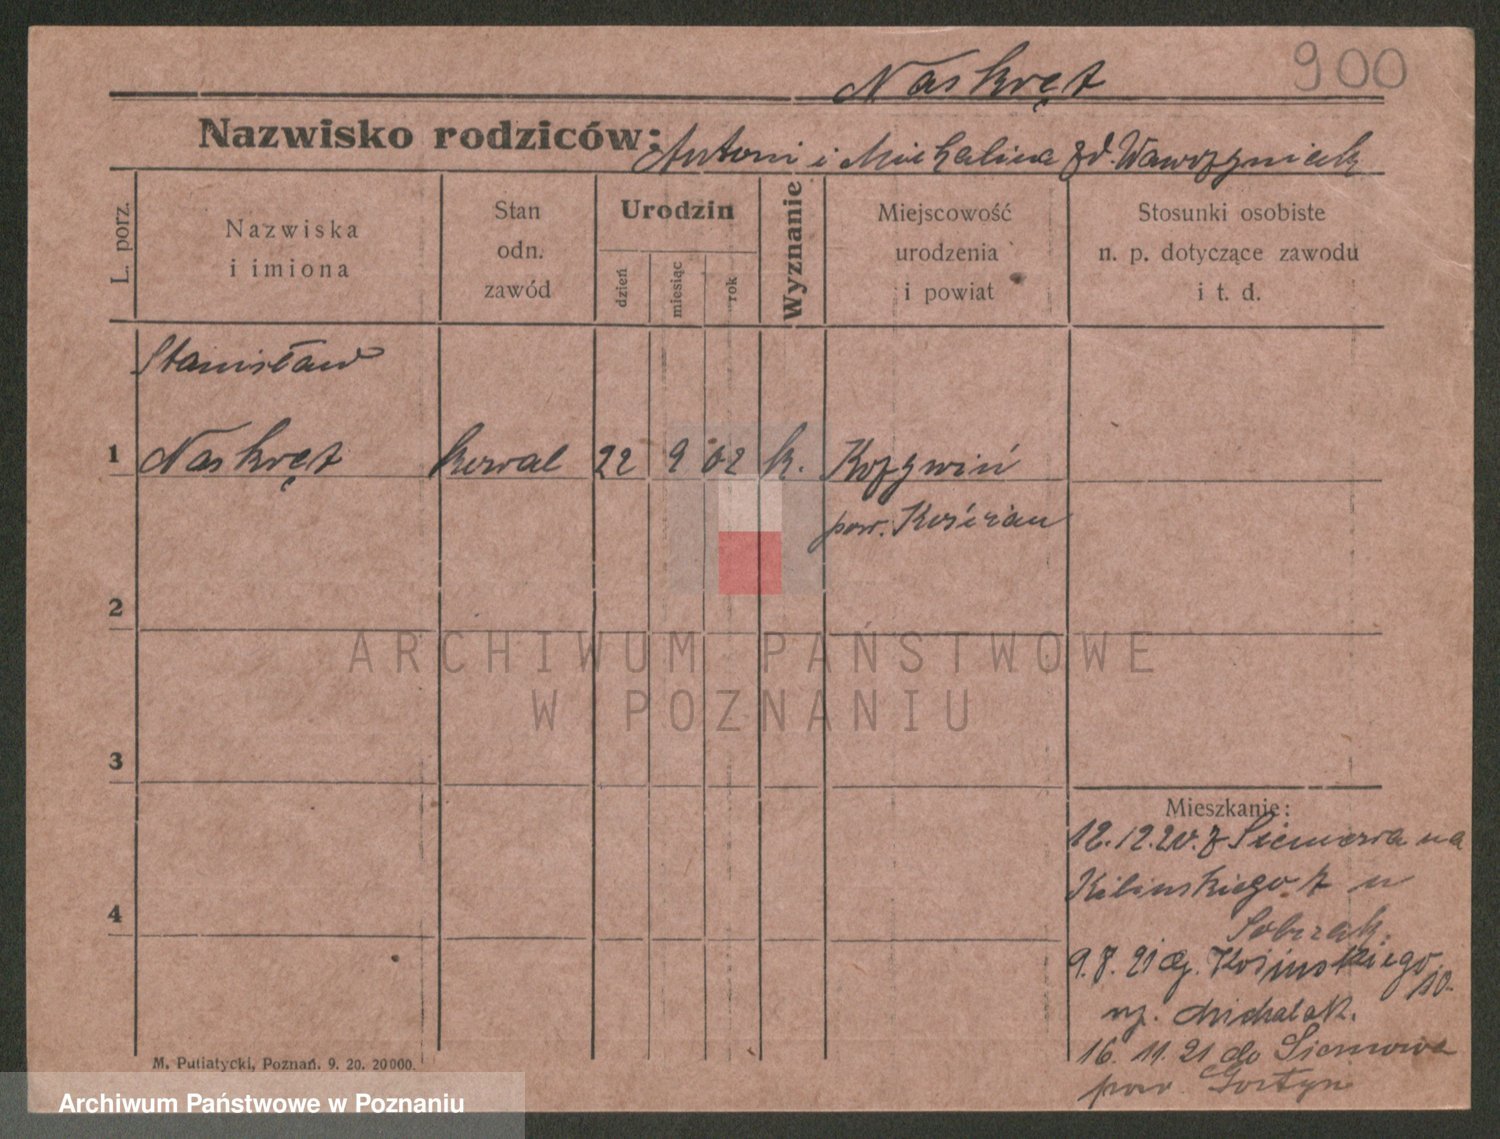 900
Naskręt
Nazwisko rodziców: Antoni i Michalina zd. Wawrzyniak
L. porz.
Nazwiska
i imiona
Stan
odn.
zawód
Urodzin
dzień
miesiąc
rok
Wyznanie
Miejscowość
urodzenia
i powiat
Stosunki osobiste
n. p. dotyczące zawodu
i t. d.
Stanisław
1 Naskręt kowal 22 9 02 k. Krzywiń
pow. Kościan
2
ARCHIWUM PAŃSTWOWE
W POZNANIU
3
Mieszkanie:
12.12.20. z Siemowa na
Kilinskiego 7 u
Sobczak.
9.8.21 Kosinskiego 10.
Michalak.
4
16. 11. 21 do Siemowa
pow. Gostyn
M. Putiatycki, Poznań. 9. 20. 20000.
Archiwum Państwowe w Poznaniu